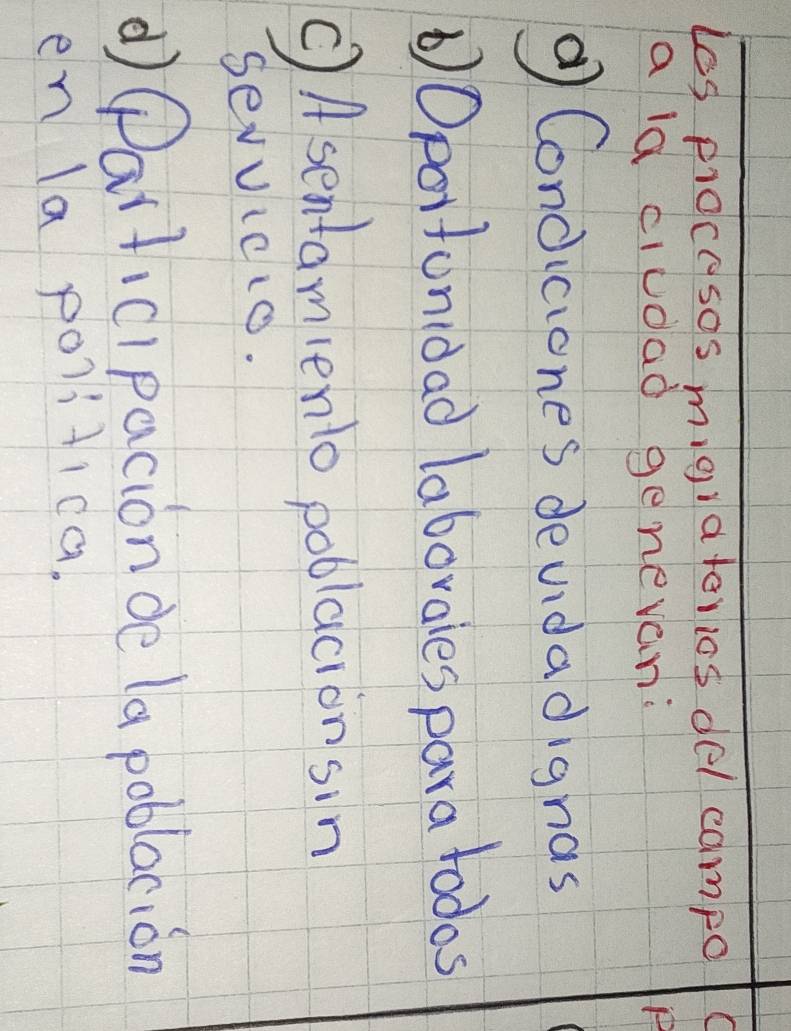 Los procesos migratorios del campo
a la ciudad generan:
a) Condiciones de vida dignas
b) Oportunidad laborales para todos
c) Asentamiento poblacion sin
servicio.
d) Participación de la población
en la política.